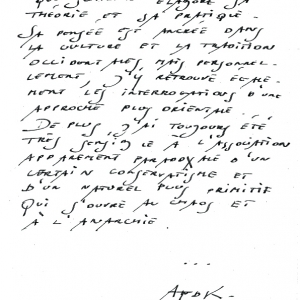 QUI JUSTEMENT ÉLABORE SA
THÉORIE ET SA PRATIQUE.
SA PENSÉE EST ANCRÉE DANS
LA CULTURE ET LA TRADITION
OCCIDENTALES, MAIS PERSONNEL-
LEMENT, J'Y RETROUVE ÉGALE-
MENT LES INTERROGATIONS D'UNE
APPROCHE PLUS ORIENTALE...
DE PLUS, J'AI TOUJOURS ÉTÉ
TRÈS SENSIBLE À L'ASSOCIATION
APPAREMENT PARADOXALE D'UN
CERTAIN CONSERVATISME ET
D'UN NATUREL PLUS PRIMITIF
QUI S'OUVRE AU CHAOS ET
À L'ANARCHIE.
...